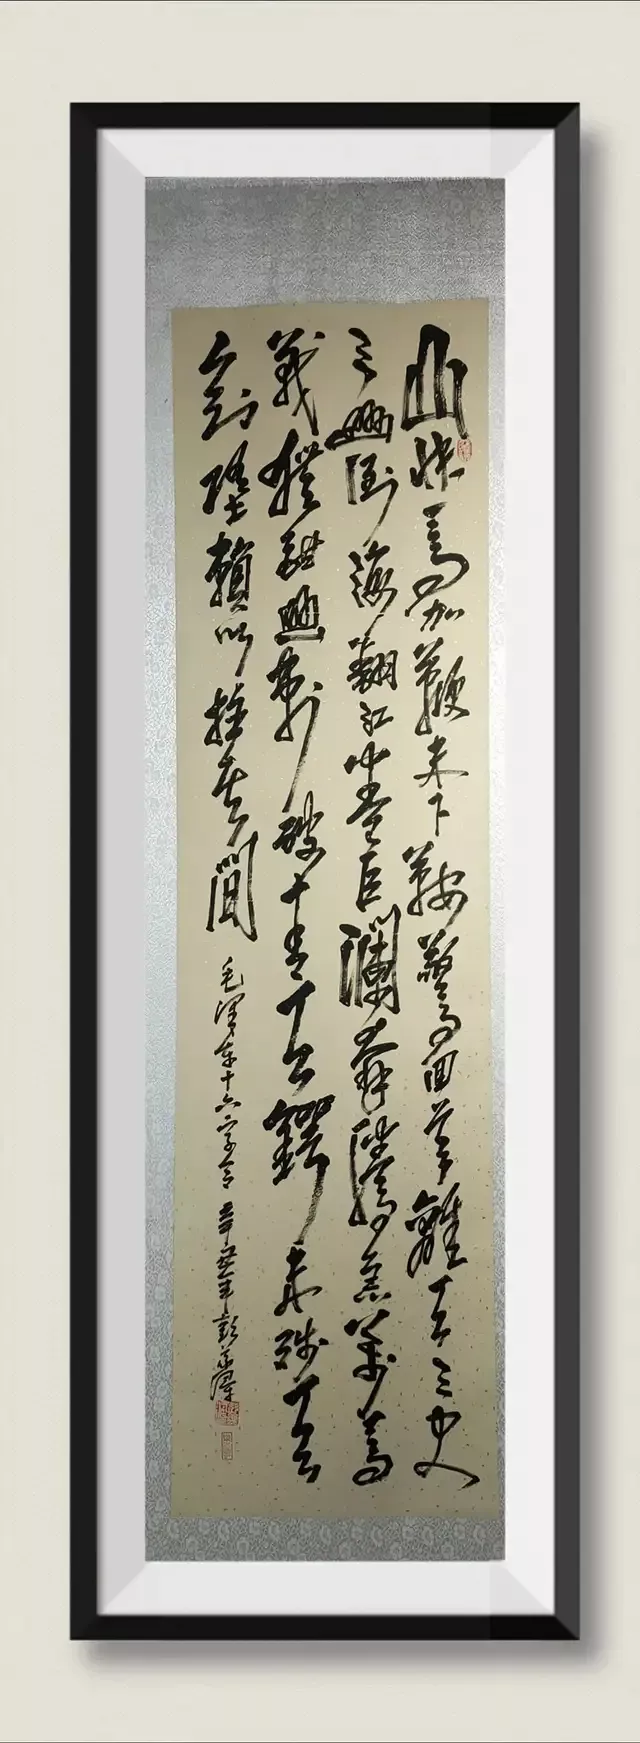 山快馬加鞭未下鞍驚回首離天三尺
三山倒海翻江卷巨瀾奔騰急萬馬
戰猶酣山刺破青天鍔未殘天
欲墮賴以拄其間
毛澤东十六字令 辛丑年彭